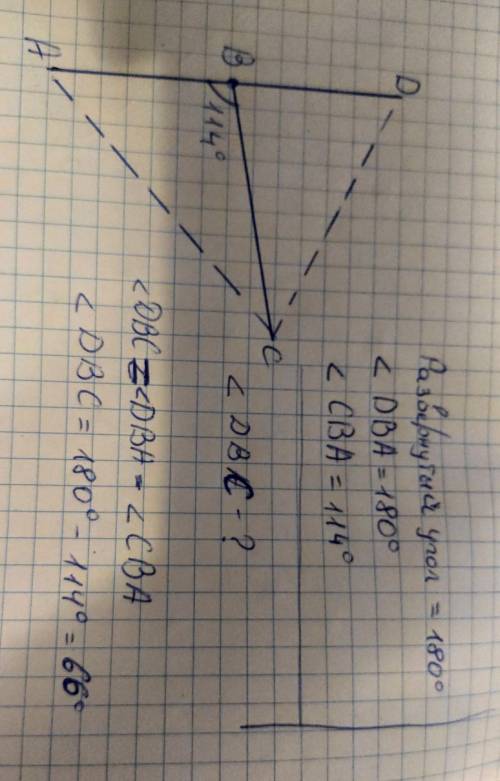 A
B
D
114°
C
Развёрнутый угол = 180°
< DBA = 180°
< CBA = 114°
< DBC - ?
< DBC = < DBA - < CBA
< DBC = 180° - 114° = 66°